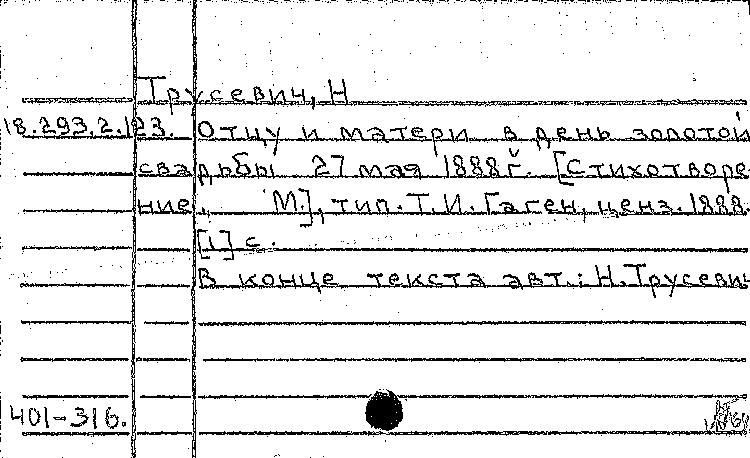 Трусевич, Н
18.293.2.123. Отцу и матери в день золотой
свадьбы 27 мая 1888 г. [Стихотворе-
ние, М.], тип. Т.И. Гаген, ценз. 1888.
[1] с.
В конце текста авт.: Н. Трусевич
401-316.